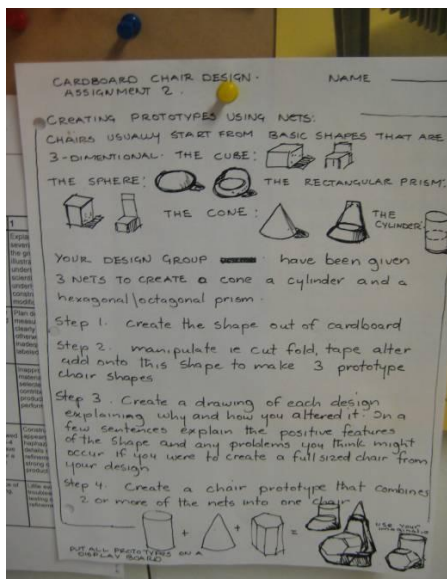 CARDBOARD CHAIR DESIGN.
ASSIGNMENT 2.
NAME
CREATING PROTOTYPES USING NETS:
CHAIRS USUALLY START FROM BASIC SHAPES THAT ARE
3-DIMENTIONAL. THE CUBE:
THE SPHERE:
THE RECTANGULAR PRISM:
THE CONE:
THE CYLINDER:
YOUR DESIGN GROUP have been given
3 NETS TO CREATE a cone a cylinder and a
hexagonal\octagonal prism.
Step 1. Create the shape out of cardboard
Step 2. manipulate ie cut fold, tape alter
add onto this shape to make 3 prototype
chair shapes
Step 3. Create a drawing of each design
explaining why and how you altered it. In a
few sentences explain the positive features
of the shape and any problems you think might
occur if you were to create a full sized chair from
your design
Step 4. Create a chair prototype that combines
2 or more of the nets into one chair
+ + =
USE YOUR
PUT ALL PROTOTYPES ON A
DISPLAY BOARD